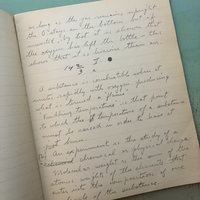 as long as the gas remains upright
the O stays in the bottom but if
inverted by test it is shown that
the oxygen has left the bottle - this
shows that it is heavier than air.
14 2/3 J.
A substance is combustible when it
unites rapidly with oxygen producing
heat & a flame
Kindling temperature is that point
to which the temperature of a substance
must be raised in order to have it
just burn.
An experiment is the study of a
observed or physical change
Molecular weight is the sum of the
atomic weights of the elements that
enter into the composition of one
molecule of the substance.